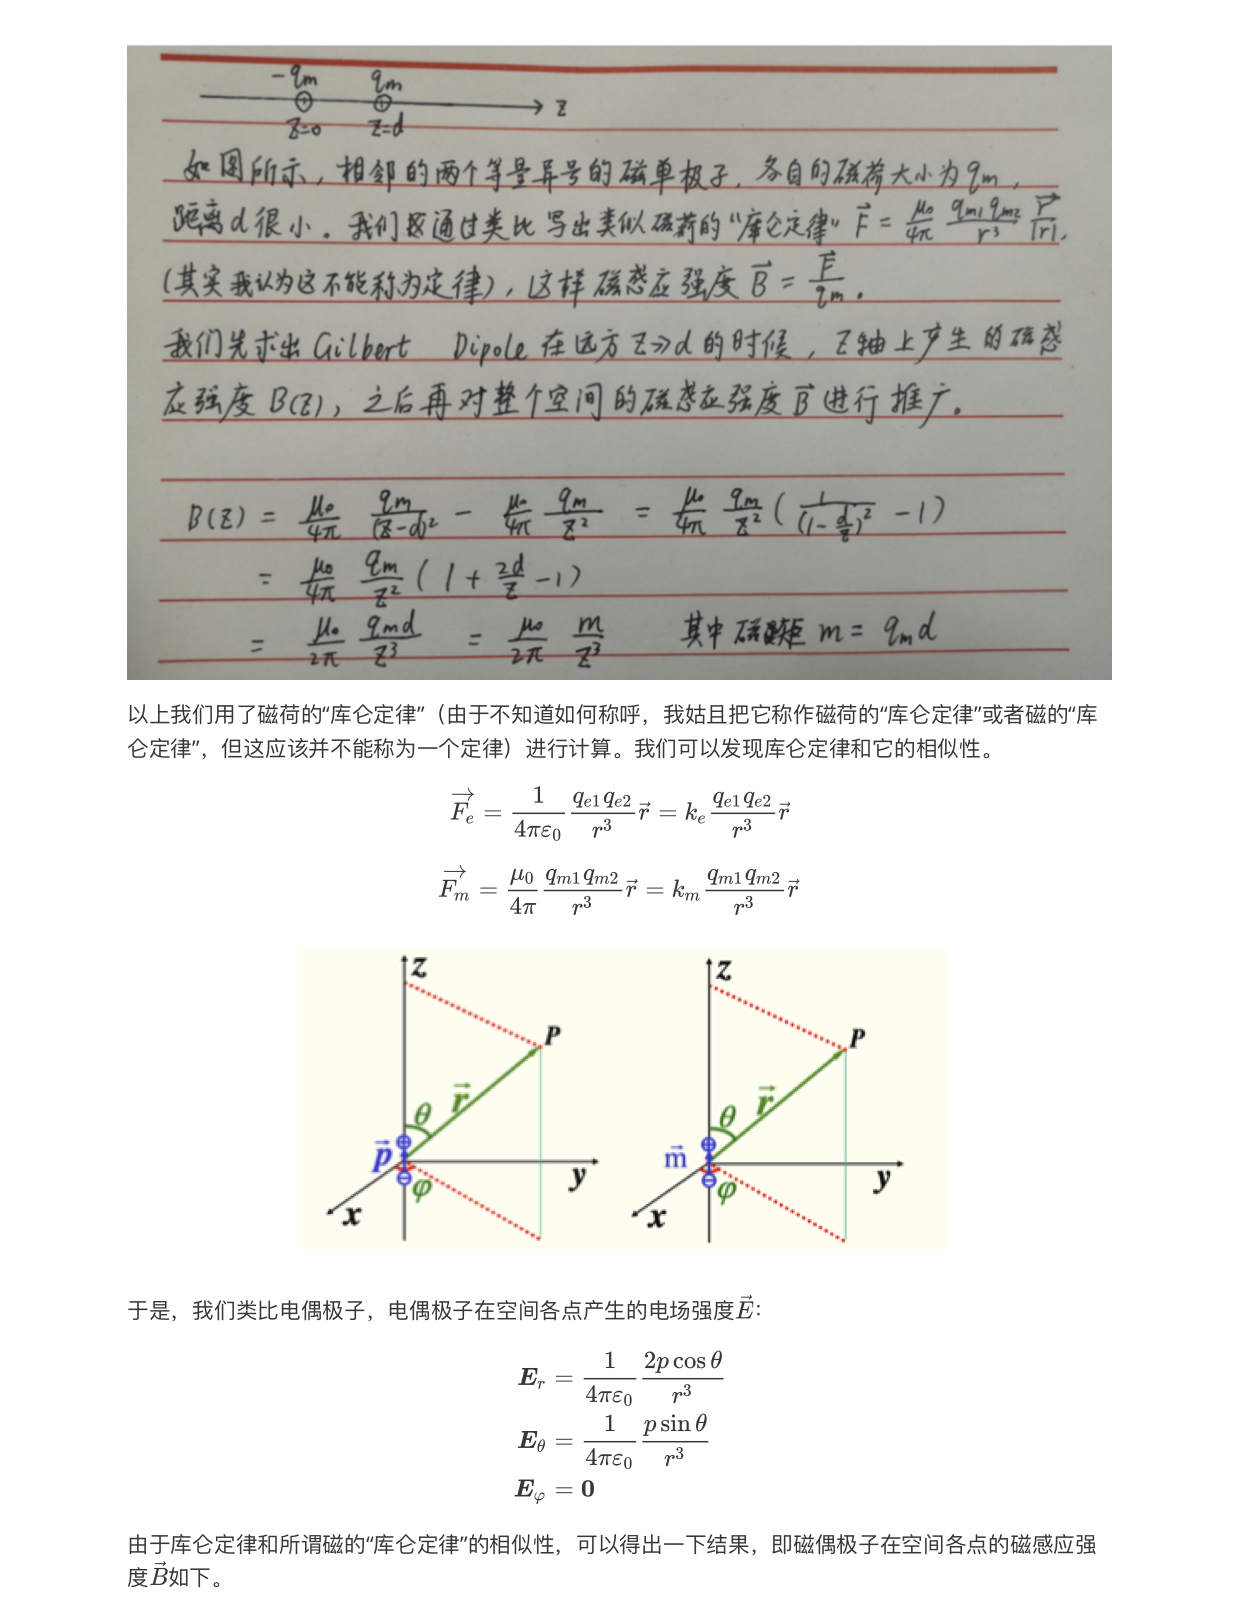 -qm qm
z
z=0 z=d
如图所示，相邻的两个等量异号的磁单极子，各自的磁荷大小为 qm，
距离d很小。我们通过类比写出类似磁荷的“库仑定律” F⃗ = μ₀/4π qm1qm2/r³ r⃗/|r|，
(其实我认为这不能称为定律)，这样磁感应强度 B⃗ = F⃗/qm。
我们先求出 Gilbert Dipole 在远方 z≫d 的时候，z轴上产生的磁感
应强度 B(z)，之后再对整个空间的磁感应强度 B⃗ 进行推广。
B(z) = μ₀/4π qm/(z-d)² - μ₀/4π qm/z² = μ₀/4π qm/z² ( 1/(1-d/z)² - 1 )
= μ₀/4π qm/z² ( 1 + 2d/z - 1 )
= μ₀/2π qmd/z³ = μ₀/2π m/z³ 其中磁矩 m = qmd
以上我们用了磁荷的“库仑定律”（由于不知道如何称呼，我姑且把它称作磁荷的“库仑定律”或者磁的“库
仑定律”，但这应该并不能称为一个定律）进行计算。我们可以发现库仑定律和它的相似性。
F⃗e = 1/4πε₀ qe1qe2/r³ r⃗ = ke qe1qe2/r³ r⃗
F⃗m = μ₀/4π qm1qm2/r³ r⃗ = km qm1qm2/r³ r⃗
z P r⃗ θ p⃗ y φ x
z P r⃗ θ m⃗ y φ x
于是，我们类比电偶极子，电偶极子在空间各点产生的电场强度E⃗：
Er = 1/4πε₀ 2p cos θ/r³
Eθ = 1/4πε₀ p sin θ/r³
Eφ = 0
由于库仑定律和所谓磁的“库仑定律”的相似性，可以得出一下结果，即磁偶极子在空间各点的磁感应强
度B⃗如下。